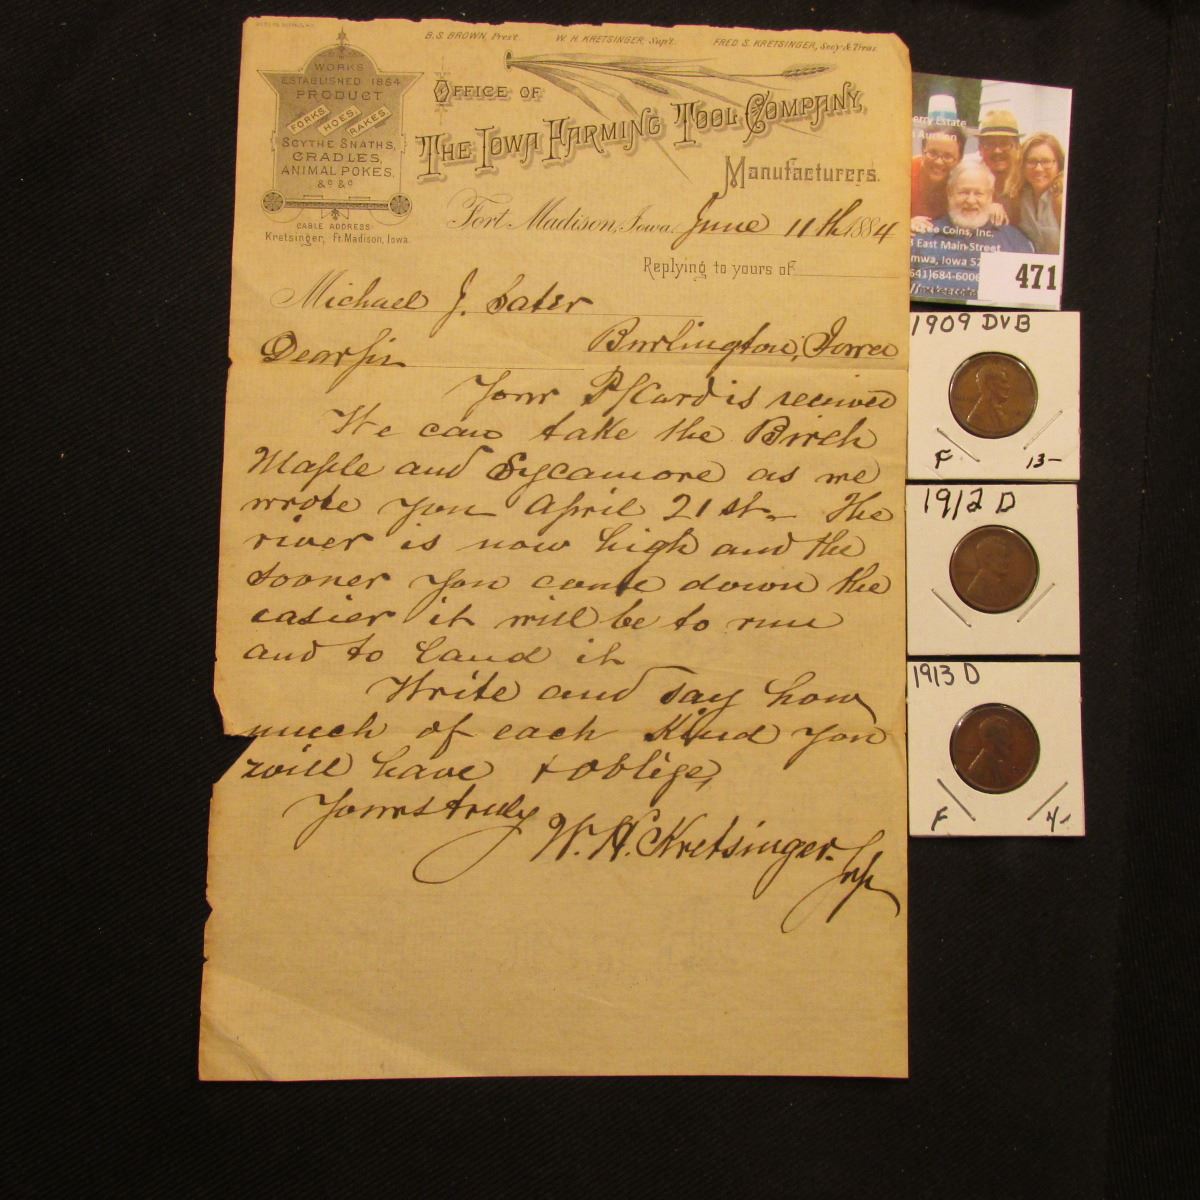 B.S. BROWN, Prest. W. H. KRETSINGER, Sup't. FRED S. KRETSINGER, Secy & Treas.
WORKS
ESTABLISHED 1864
PRODUCT
FORKS, HOES, RAKES,
SCYTHE SNATHS,
CRADLES,
ANIMAL POKES,
&c &c
CABLE ADDRESS
Kretsinger, Ft. Madison, Iowa.
OFFICE OF
THE IOWA FARMING TOOL COMPANY,
Manufacturers.
Fort Madison, Iowa, June 11th 1884
Replying to yours of
Michael J. Sater
Burlington, Iowa
Dear Sir
Your P/Card is received
We can take the Birch
Maple and Sycamore as we
wrote you April 21st. The
river is now high and the
sooner you come down the
easier it will be to run
and to land it
Write and say how
much of each Kind you
will have & oblige,
Yours truly
W. H. Kretsinger
erry Estate
Auction
Coins, Inc.
3 East Main Street
mwa, Iowa 52
641)684-6006
471
1909 DVB
F 13-
1912 D
1913 D
F 4-